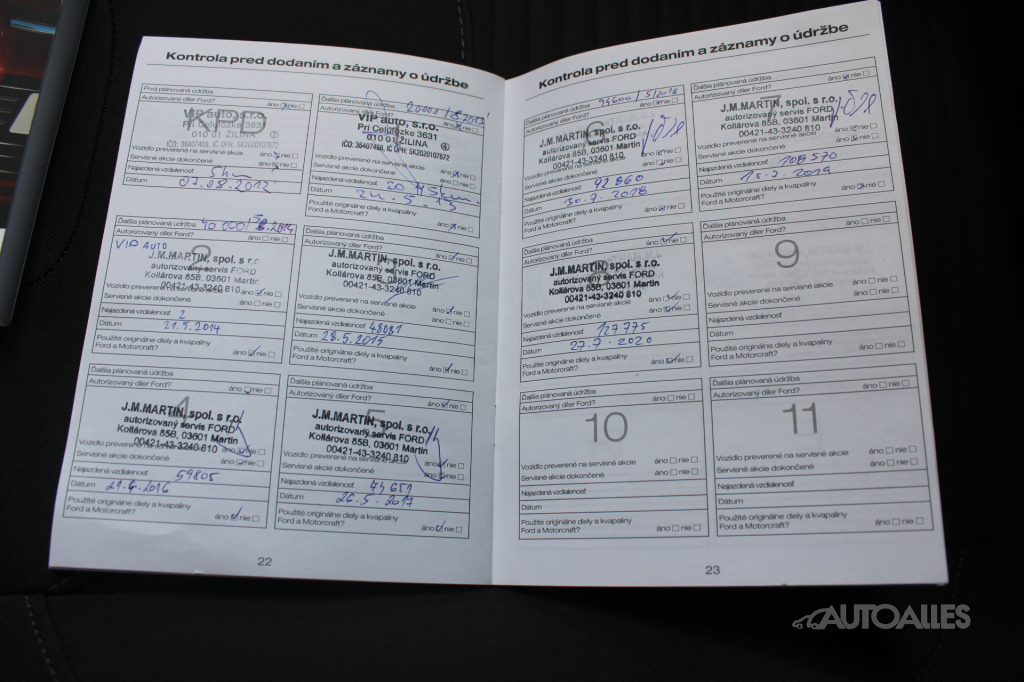 Kontrola pred dodaním a záznamy o údržbe
Prvá plánovaná údržba
Autorizovaný díler Ford? áno nie
VIP auto, s.r.o.
Pri Celulózke 3631
010 01 ŽILINA
IČO: 36407488, IČ DPH: SK2020107672
Vozidlo preverené na servisné akcie áno nie
Servisné akcie dokončené áno nie
Najazdená vzdialenosť 5km
Dátum 07.08.2012
Ďalšia plánovaná údržba 20000 / 8.2013
Autorizovaný díler Ford? áno nie
VIP auto, s.r.o.
Pri Celulózke 3631
010 01 ŽILINA 4
IČO: 36407488, IČ DPH: SK2020107672
Vozidlo preverené na servisné akcie áno nie
Servisné akcie dokončené áno nie
Najazdená vzdialenosť
Dátum
Použité originálne diely a kvapaliny
Ford a Motorcraft? áno nie
Ďalšia plánovaná údržba 40 000
Autorizovaný díler Ford? áno nie
VIP AUTO
J.M.MARTIN, spol. s r.o.
autorizovaný servis FORD
Kollárova 85B, 03601 Martin
00421-43-3240 810
Vozidlo preverené na servisné akcie áno nie
Servisné akcie dokončené áno nie
Najazdená vzdialenosť 2
Dátum 21.5.2014
Použité originálne diely a kvapaliny
Ford a Motorcraft? áno nie
Ďalšia plánovaná údržba
Autorizovaný díler Ford? áno nie
J.M.MARTIN, spol. s r.o.
autorizovaný servis FORD
Kollárova 85B, 03601 Martin
00421-43-3240 810
Vozidlo preverené na servisné akcie áno nie
Servisné akcie dokončené áno nie
Najazdená vzdialenosť 48081
Dátum 28.5.2015
Použité originálne diely a kvapaliny
Ford a Motorcraft? áno nie
Ďalšia plánovaná údržba
Autorizovaný díler Ford? áno nie
4
J.M.MARTIN, spol. s r.o.
autorizovaný servis FORD
Kollárova 85B, 03601 Martin
00421-43-3240 810
Vozidlo preverené na servisné akcie áno nie
Servisné akcie dokončené áno nie
Najazdená vzdialenosť 59805
Dátum 21.6.2016
Použité originálne diely a kvapaliny
Ford a Motorcraft? áno nie
Ďalšia plánovaná údržba
Autorizovaný díler Ford? áno nie
5
J.M.MARTIN, spol. s r.o.
autorizovaný servis FORD
Kollárova 85B, 03601 Martin
00421-43-3240 810
Vozidlo preverené na servisné akcie áno nie
Servisné akcie dokončené áno nie
Najazdená vzdialenosť 74651
Dátum 26.5.2017
Použité originálne diely a kvapaliny
Ford a Motorcraft? áno nie
22
Kontrola pred dodaním a záznamy o údržbe
Ďalšia plánovaná údržba 94600 / 5/2018
Autorizovaný díler Ford? áno nie
6
J.M.MARTIN, spol. s r.o.
autorizovaný servis FORD
Kollárova 85B, 03601 Martin
00421-43-3240 810
Vozidlo preverené na servisné akcie áno nie
Servisné akcie dokončené áno nie
Najazdená vzdialenosť 92 860
Dátum 30.7.2018
Použité originálne diely a kvapaliny
Ford a Motorcraft? áno nie
Ďalšia plánovaná údržba
Autorizovaný díler Ford? áno nie
J.M.MARTIN, spol. s r.o.
autorizovaný servis FORD
Kollárova 85B, 03601 Martin
00421-43-3240 810
Vozidlo preverené na servisné akcie áno nie
Servisné akcie dokončené áno nie
Najazdená vzdialenosť 108 570
Dátum 15.7.2019
Použité originálne diely a kvapaliny
Ford a Motorcraft? áno nie
Ďalšia plánovaná údržba
Autorizovaný díler Ford? áno nie
J.M.MARTIN, spol. s r.o.
autorizovaný servis FORD
Kollárova 85B, 03601 Martin
00421-43-3240 810
Vozidlo preverené na servisné akcie áno nie
Servisné akcie dokončené áno nie
Najazdená vzdialenosť 127 775
Dátum 27.7.2020
Použité originálne diely a kvapaliny
Ford a Motorcraft? áno nie
Ďalšia plánovaná údržba
Autorizovaný díler Ford? áno nie
9
Vozidlo preverené na servisné akcie áno nie
Servisné akcie dokončené áno nie
Najazdená vzdialenosť
Dátum
Použité originálne diely a kvapaliny
Ford a Motorcraft? áno nie
Ďalšia plánovaná údržba
Autorizovaný díler Ford? áno nie
10
Vozidlo preverené na servisné akcie áno nie
Servisné akcie dokončené áno nie
Najazdená vzdialenosť
Dátum
Použité originálne diely a kvapaliny
Ford a Motorcraft? áno nie
Ďalšia plánovaná údržba
Autorizovaný díler Ford? áno nie
11
Vozidlo preverené na servisné akcie áno nie
Servisné akcie dokončené áno nie
Najazdená vzdialenosť
Dátum
Použité originálne diely a kvapaliny
Ford a Motorcraft? áno nie
23
AUTOALLES